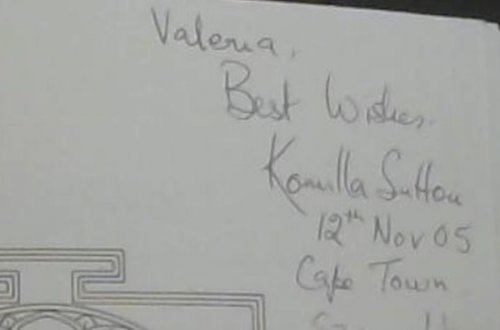 Valeria,
Best Wishes.
Komilla Sutton
12th Nov 05
Cape Town